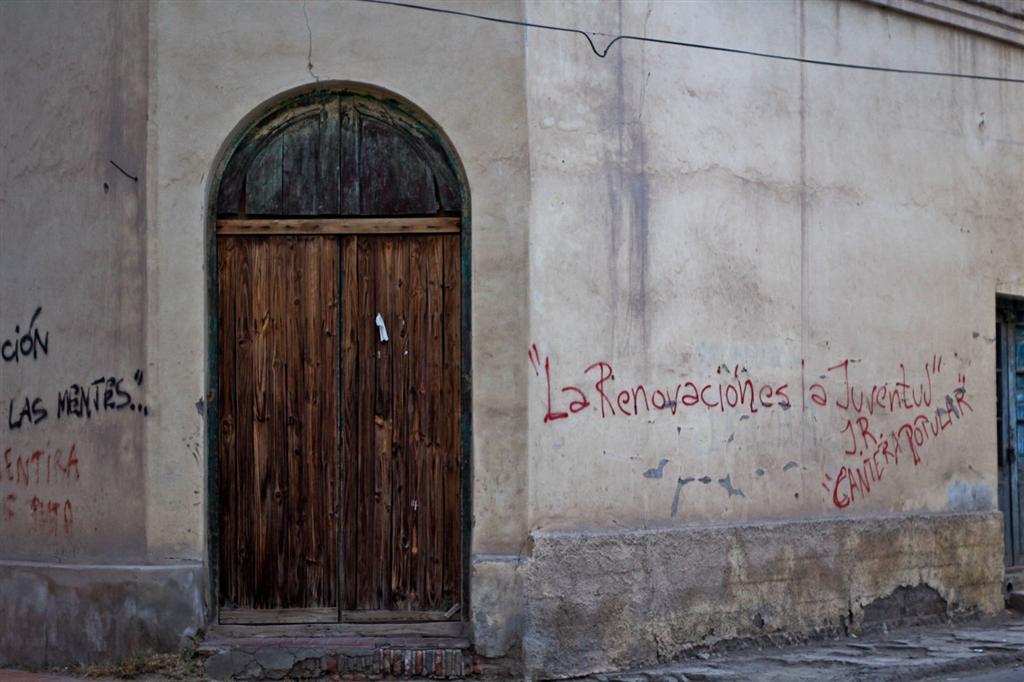 ción
LAS MENTES"...
ENTIRA
"La Renovaciónes la Juventud"
J.R.
"CANTERA POPULAR"